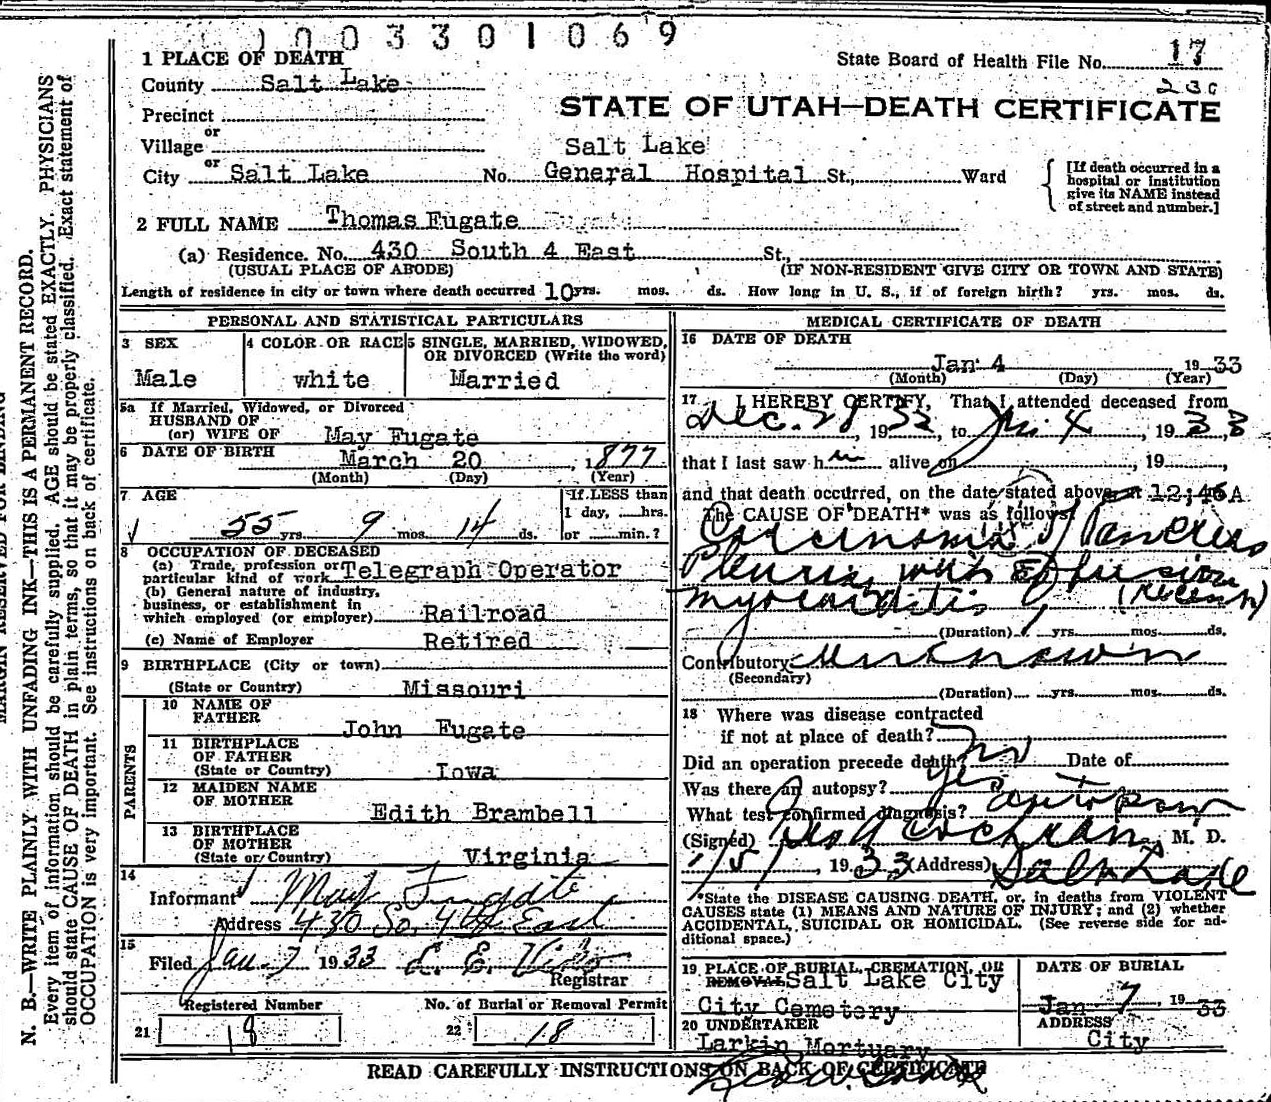 1003301069
1 PLACE OF DEATH
State Board of Health File No. 17
County Salt Lake
230
STATE OF UTAH—DEATH CERTIFICATE
Precinct
or
Village
Salt Lake
or
City Salt Lake No. General Hospital St., Ward
[If death occurred in a
hospital or institution
give its NAME instead
of street and number.]
2 FULL NAME Thomas Fugate
(a) Residence. No. 430 South 4 East St.,
(USUAL PLACE OF ABODE) (IF NON-RESIDENT GIVE CITY OR TOWN AND STATE)
Length of residence in city or town where death occurred 10 yrs. mos. ds. How long in U. S., if of foreign birth? yrs. mos. ds.
PERSONAL AND STATISTICAL PARTICULARS
3 SEX
Male
4 COLOR OR RACE
white
5 SINGLE, MARRIED, WIDOWED,
OR DIVORCED (Write the word)
Married
5a If Married, Widowed, or Divorced
HUSBAND OF
(or) WIFE OF May Fugate
6 DATE OF BIRTH March 20, 1877
(Month) (Day) (Year)
7 AGE
55 yrs. 9 mos. 14 ds.
If LESS than
1 day, hrs.
or min.?
8 OCCUPATION OF DECEASED
(a) Trade, profession or
particular kind of work Telegraph Operator
(b) General nature of industry,
business, or establishment in
which employed (or employer) Railroad
(c) Name of Employer Retired
9 BIRTHPLACE (City or town)
(State or Country) Missouri
PARENTS
10 NAME OF
FATHER John Fugate
11 BIRTHPLACE
OF FATHER
(State or Country) Iowa
12 MAIDEN NAME
OF MOTHER Edith Brambell
13 BIRTHPLACE
OF MOTHER
(State or Country) Virginia
14
Informant May Fugate
Address 430 So. 4th East
15
Filed Jan. 7 1933 L. E.
Registrar
Registered Number
21 18
No. of Burial or Removal Permit
22 18
MEDICAL CERTIFICATE OF DEATH
16 DATE OF DEATH
Jan 4 1933
(Month) (Day) (Year)
17 I HEREBY CERTIFY, That I attended deceased from
Dec. 28, 1932, to Jan. 4, 1933,
that I last saw him alive on , 19 ,
and that death occurred, on the date stated above, at 12:46 A
The CAUSE OF DEATH* was as follows:
Carcinoma of Pancreas
Pleurisy with Effusion
Myocarditis (recent)
(Duration) yrs. mos. ds.
Contributory Unknown
(Secondary)
(Duration) yrs. mos. ds.
18 Where was disease contracted
if not at place of death?
Did an operation precede death? No Date of
Was there an autopsy? Yes
What test confirmed diagnosis? autopsy
(Signed) Cochran, M. D.
1/5/, 1933 (Address) Salt Lake
*State the DISEASE CAUSING DEATH, or, in deaths from VIOLENT
CAUSES state (1) MEANS AND NATURE OF INJURY; and (2) whether
ACCIDENTAL, SUICIDAL OR HOMICIDAL. (See reverse side for ad-
ditional space.)
19 PLACE OF BURIAL, CREMATION, OR
REMOVAL Salt Lake City
City Cemetery
DATE OF BURIAL
Jan 7, 1933
20 UNDERTAKER
Larkin Mortuary
ADDRESS
City
READ CAREFULLY INSTRUCTIONS ON BACK OF CERTIFICATE
MARGIN RESERVED FOR BINDING
N. B.—WRITE PLAINLY WITH UNFADING INK—THIS IS A PERMANENT RECORD.
Every item of information should be carefully supplied. AGE should be stated EXACTLY. PHYSICIANS
should state CAUSE OF DEATH in plain terms, so that it may be properly classified. Exact statement of
OCCUPATION is very important. See instructions on back of certificate.